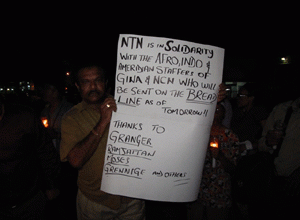 NTN is in SOLIDARITY
WITH THE AFRO, INDO &
AMERINDIAN STAFFERS OF
GINA & NCN WHO WILL
BE SENT ON THE BREAD
LINE AS OF
TOMORROW!!
THANKS TO
GRANGER
RAMJATTAN
MOSES
GREENIDGE AND OTHERS